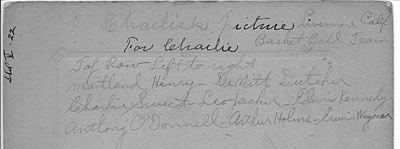 Charlies picture Livermore Calif
For Charlie Basket Ball Team
Top Row Left to right
Maitland Henry - DeWitt Dutcher
Charlie Sweet - Leo Vacker - Edwin Kennedy
Anthony O'Donnell - Arthur Holms - Erwin Wagoner